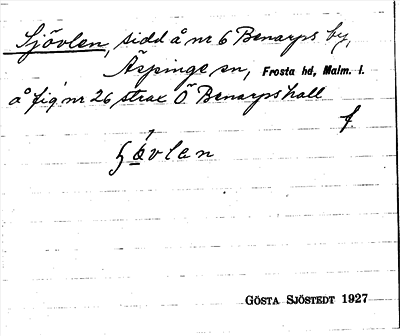 Sjövlen, sidd å nr 6 Benarps by,
Äspinge sn, Frosta hd, Malm. l.
å fig nr 26 strax Ö Benarps hall
f.
ʃövlen
GÖSTA SJÖSTEDT 1927